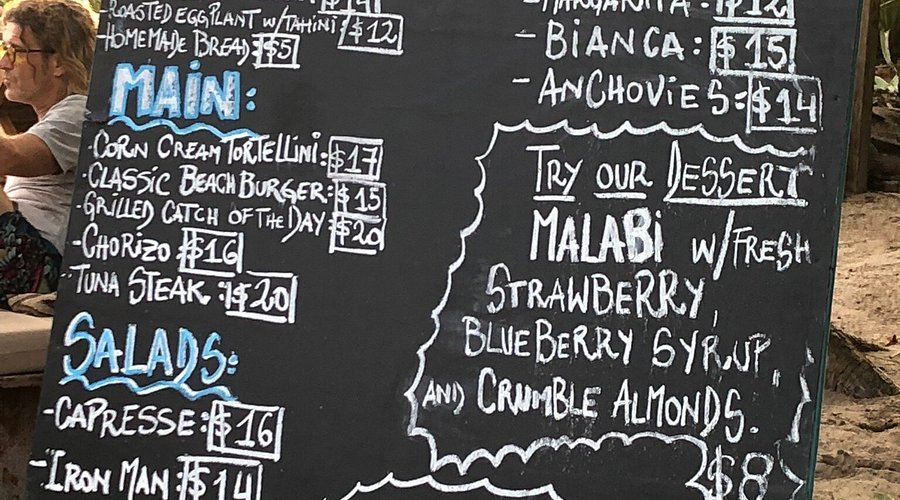 -ROASTED EGGPLANT W/TAHINI $12
-HOMEMADE BREAD: $5
MAIN:
-CORN CREAM TORTELLINI: $17
-CLASSIC BEACH BURGER: $15
-GRILLED CATCH OF THE DAY $20
-CHORIZO $16
-TUNA STEAK: $20
SALADS:
-CAPRESSE: $16
-IRON MAN: $14
-MARGARITA: $12
-BIANCA: $15
-ANCHOVIES: $14
TRY OUR DESSERT
MALABI W/FRESH
STRAWBERRY,
BLUEBERRY SYRUP,
AND CRUMBLE ALMONDS.
$8